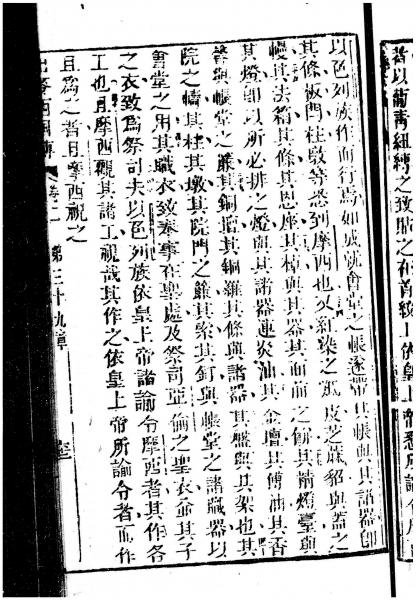 者以藍青紐縛之致貼之在首鈫上依皇上帝悉所諭令摩
以色列族作而行焉如成就會堂之帳遂帶其帳與其諸器即
其條板閂柱墩等悉到摩西也又紅染之羝皮芝蔴貂與蓋之
幔其法箱其條其恩座其檯與其器其面前之餅其精燈臺與
其燈即以所必排之燈與其諸器連炎油其金壇其傅油其香
餥與帳堂之簾其銅壇其銅羅其條與諸器其盤與其架也其
院之幬其柱其墩其院門之簾其索其釘與帳堂之諸職器以
會堂之用其職衣致奉事在聖處及祭司亞倫之聖衣並其子
之衣致為祭司夫以色列族依皇上帝諸諭令摩西者其作各
工也且摩西觀其諸工視哉其作之依皇上帝所諭令者而作
且為之者且摩西祝之
出麥西國傳 卷二 第三十九章